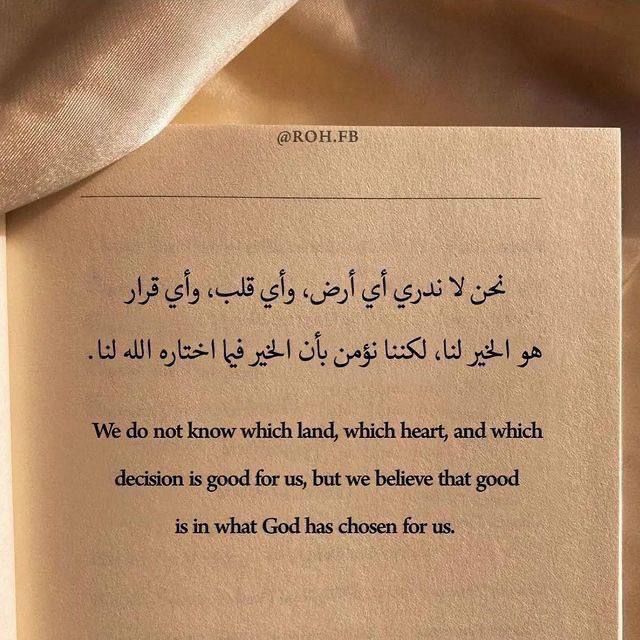 @ROH.FB
نحن لا ندري أي أرض، وأي قلب، وأي قرار
هو الخير لنا، لكننا نؤمن بأن الخير فيما اختاره الله لنا.
We do not know which land, which heart, and which
decision is good for us, but we believe that good
is in what God has chosen for us.